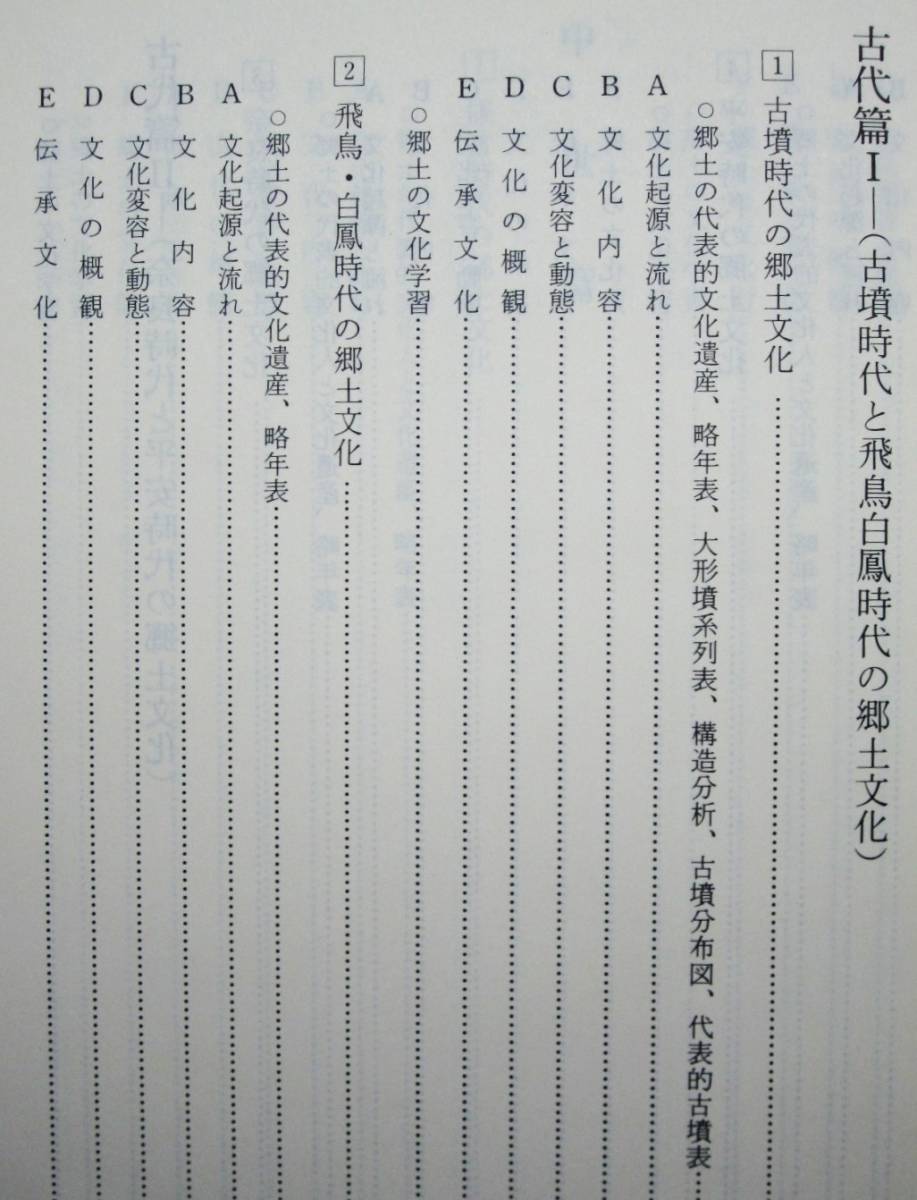 古代篇Ⅰ―(古墳時代と飛鳥白鳳時代の郷土文化)
1 古墳時代の郷土文化
○郷土の代表的文化遺産、略年表、大形墳系列表、構造分析、古墳分布図、代表的古墳表
A 文化起源と流れ
B 文化内容
C 文化変容と動態
D 文化の概観
E 伝承文化
○郷土の文化学習
2 飛鳥・白鳳時代の郷土文化
○郷土の代表的文化遺産、略年表
A 文化起源と流れ
B 文化内容
C 文化変容と動態
D 文化の概観
E 伝承文化